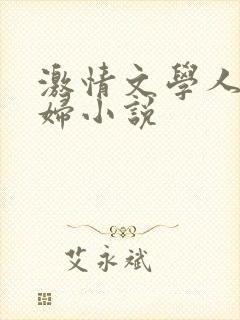 激情文學人
婦小說
艾永斌